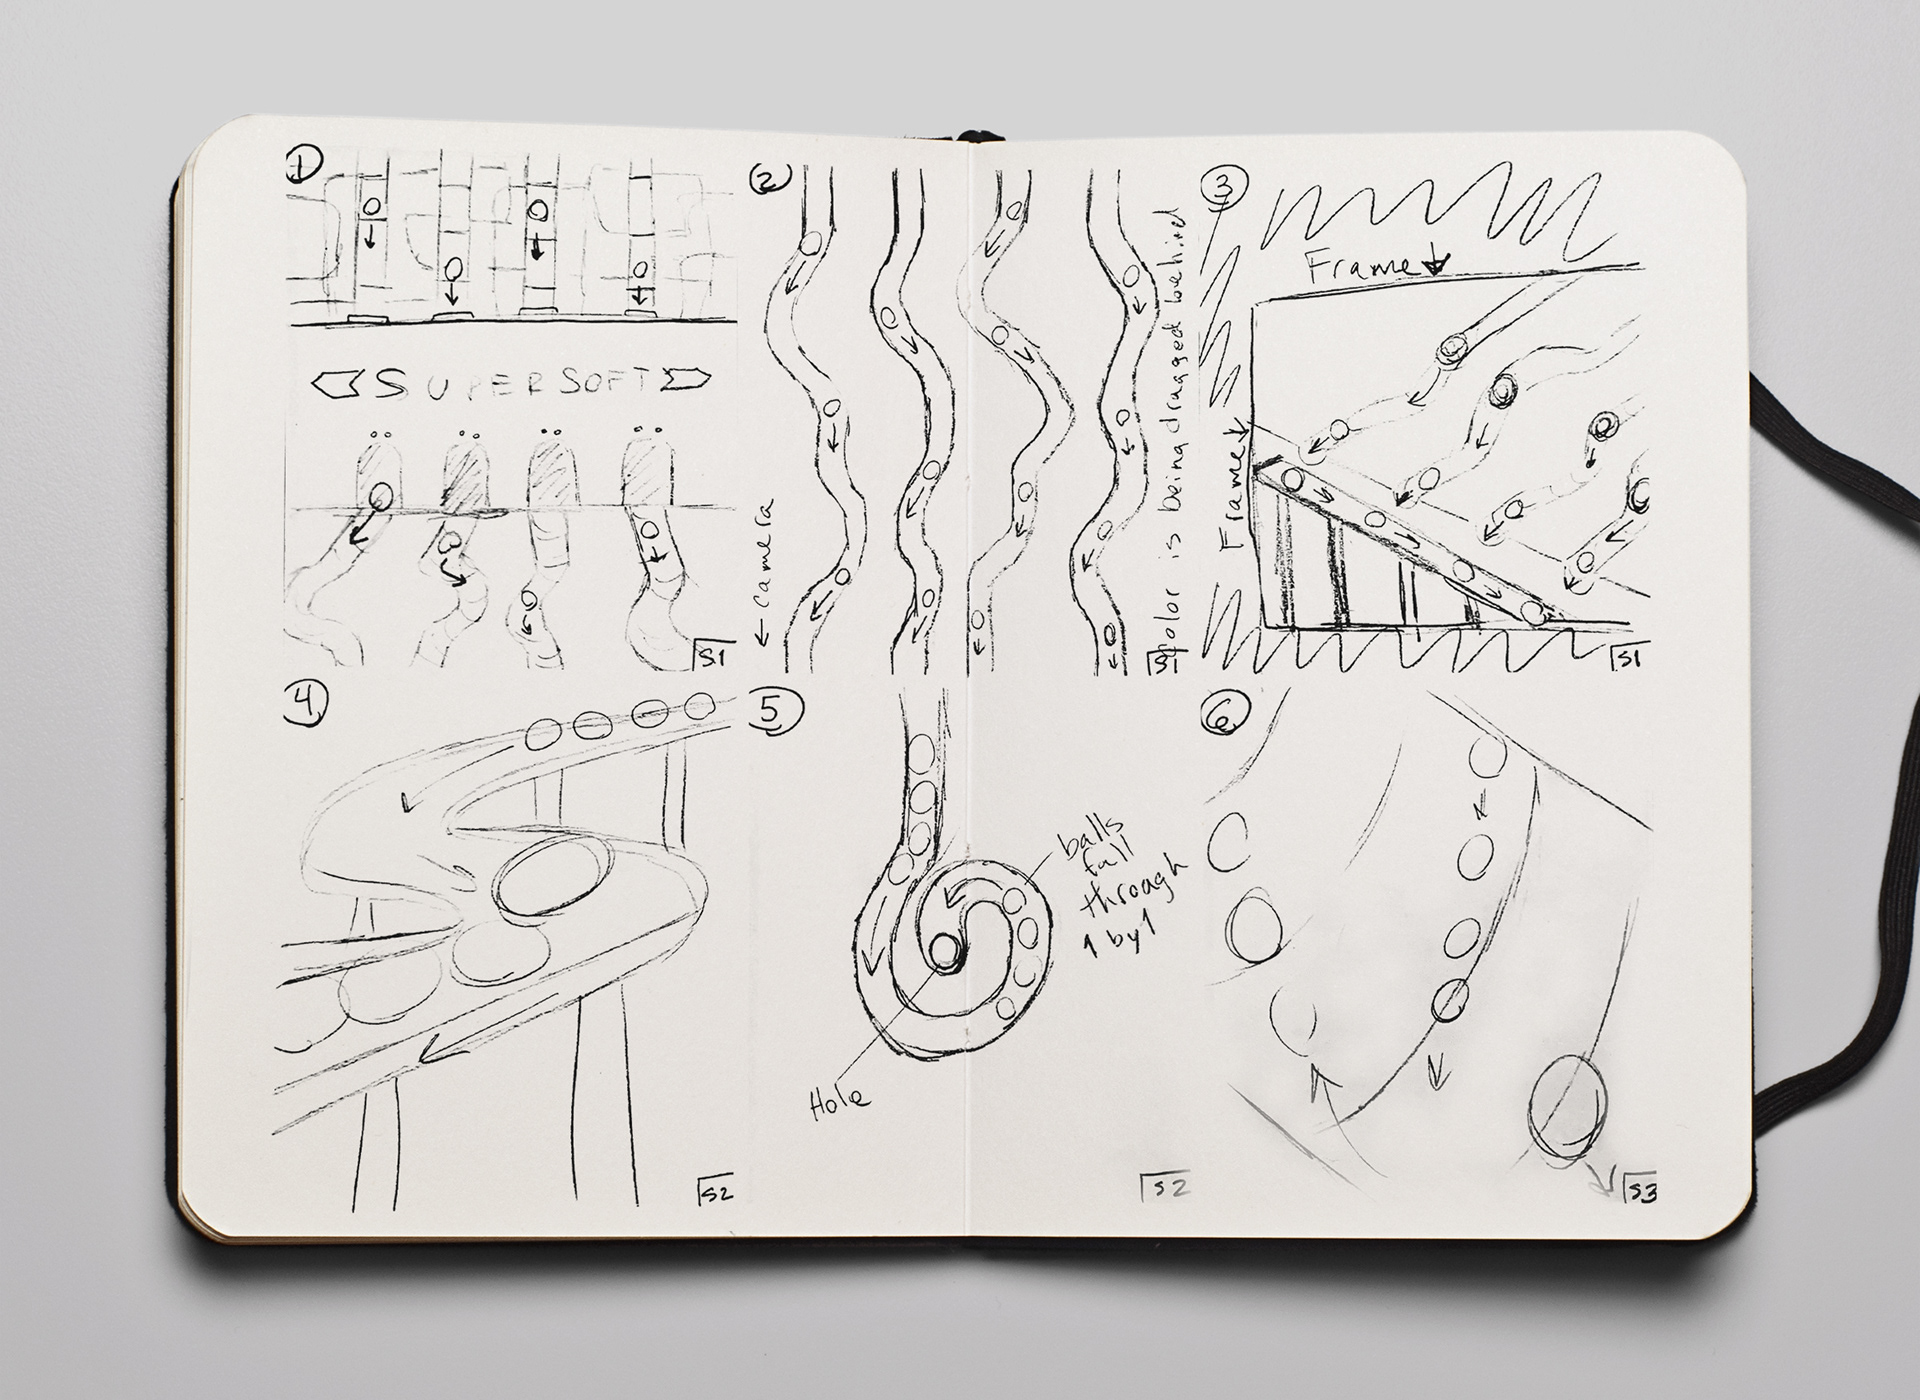 1
SUPERSOFT
S1
2
← camera
color is being dragged behind
S1
3
Frame
Frame
S1
4
S2
5
balls
fall
through
1 by 1
Hole
S2
6
S3